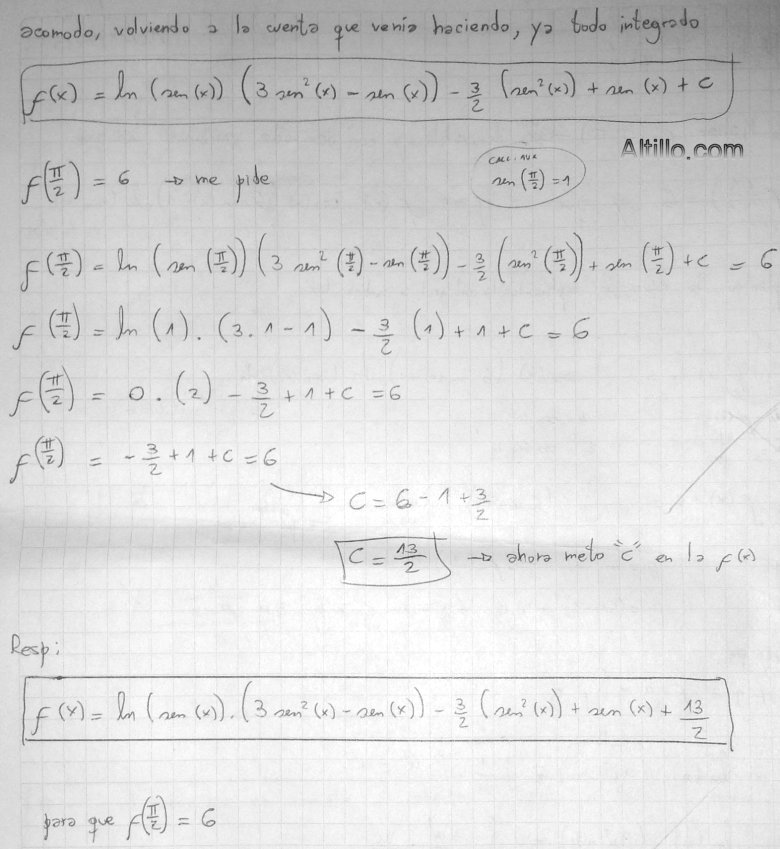 acomodo, volviendo a la cuenta que venía haciendo, ya todo integrado
f(x) = ln (sen(x)) (3 sen²(x) - sen(x)) - 3/2 (sen²(x)) + sen(x) + C
Altillo.com
f(π/2) = 6 → me pide
CALC. AUX
sen(π/2) = 1
f(π/2) = ln (sen(π/2)) (3 sen²(π/2) - sen(π/2)) - 3/2 (sen²(π/2)) + sen(π/2) + C = 6
f(π/2) = ln (1) . (3.1 - 1) - 3/2 (1) + 1 + C = 6
f(π/2) = 0 . (2) - 3/2 + 1 + C = 6
f(π/2) = - 3/2 + 1 + C = 6
→ C = 6 - 1 + 3/2
C = 13/2 → ahora meto "C" en la f(x)
Resp:
f(x) = ln (sen(x)) . (3 sen²(x) - sen(x)) - 3/2 (sen²(x)) + sen(x) + 13/2
para que f(π/2) = 6